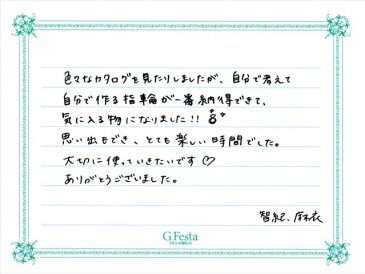 色々なカタログを見たりしましたが、自分で考えて
自分で作る指輪が一番納得できて、
気に入る物になりました!!
思い出もでき、とても楽しい時間でした。
大切に使っていきたいです♡
ありがとうございました。
智紀、麻衣
G.Festa
DIAMOND